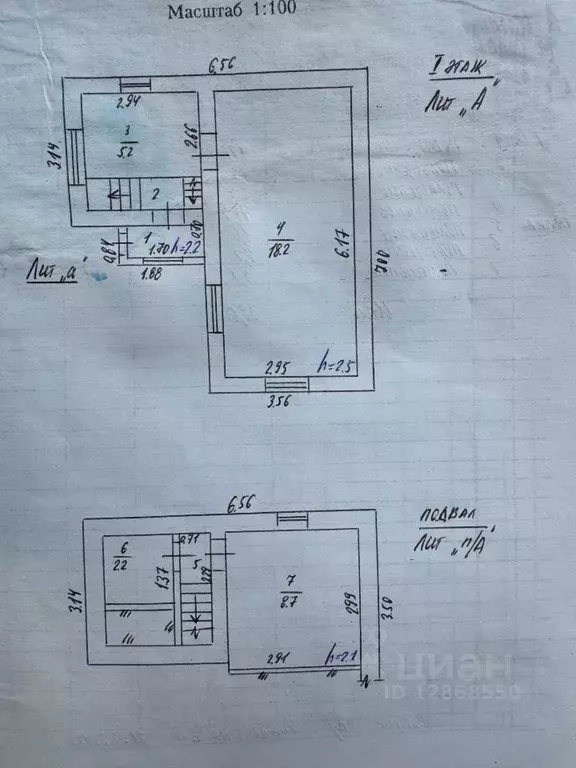 Масштаб 1:100
6.56
I этаж
Лит „А"
2.94
3
5.2
2.66
3.14
2
4
18.2
6.17
7.00
0.70
1
1.70 h=2.2
0.84
Лит „а"
1.88
2.95 h=2.5
3.56
6.56
подвал
Лит „п/А"
0.77
6
2.2
5
1.37
2.29
7
8.7
2.99
3.14
3.50
2.91 h=2.1
N
N
циан
ID 12868550